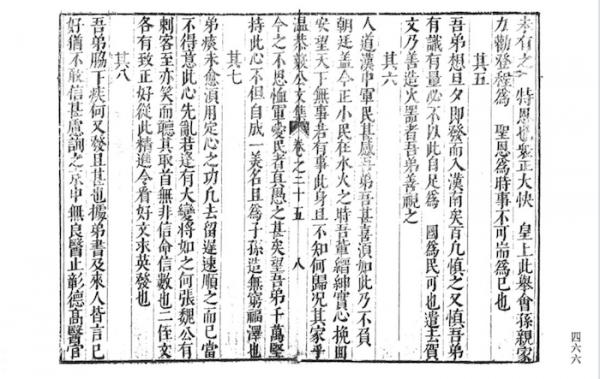 未有之 特恩 正大快 皇上此舉會孫親家
力勸登程爲 聖恩爲時事不可耑爲己也
其五
吾弟想旦夕即發而入漢南矣百凡慎之又慎吾弟
有識有量必不以此自足爲 國爲民可也遣王賀
文乃善造火器者吾弟善視之
其六
人道漢中軍民甚感吾弟吾甚喜須如此乃不負
朝廷蓋今正小民在水火之時吾輩縉紳實心挽回
安望天下無事吾有事此身且不知何歸況其家乎
温恭毅公文集 卷之二十五 八
今之不恩恤軍愛民者真愚之甚矣望吾弟千萬堅
持此心不但自成一美名且爲子孫造無窮福澤也
其七
弟痰未愈須用定心之功凡去留遲速順之而已當
不得意此心先亂若逢有大變將如之何張魏公有
刺客至亦笑而聽其取首無非信命信數也二侄文
各有致正好從此精進今看好文求英發也
其八
吾弟脇下疾何又發且甚也據弟書及來人皆言已
好猶不敢信甚慮詢之京中無良醫止彰德高醫官
四六六